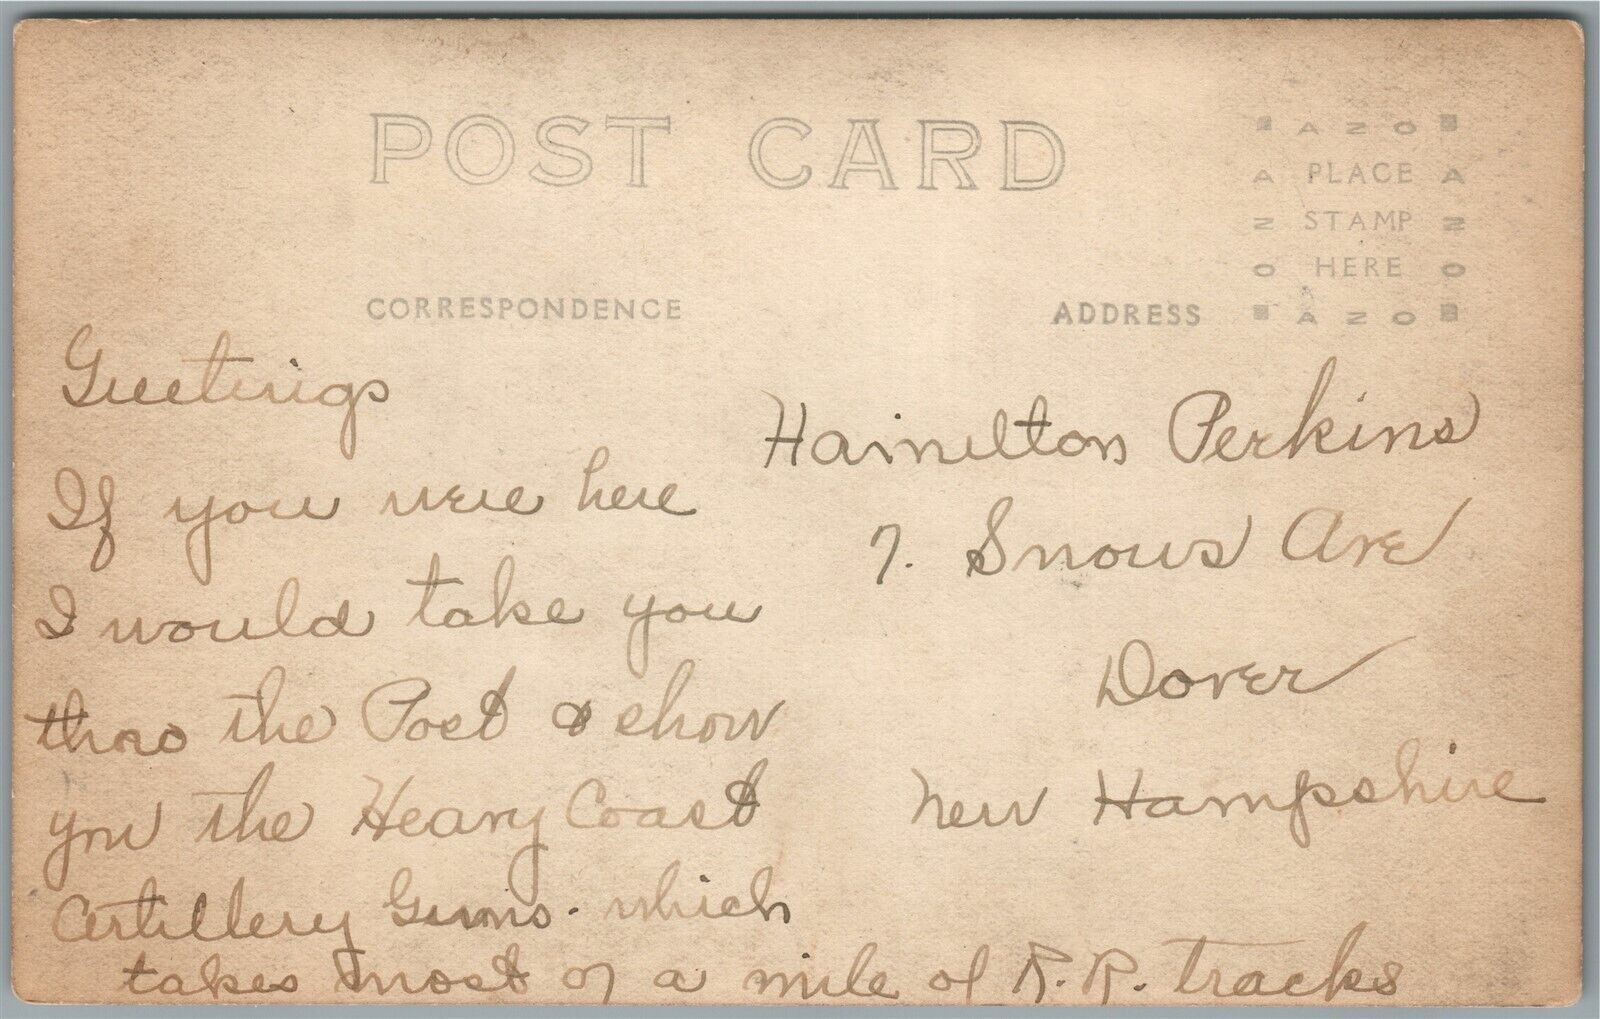 POST CARD
AZO
A PLACE A
N STAMP N
O HERE O
AZO
CORRESPONDENCE
ADDRESS
Greetings
If you were here
I would take you
thro the Post & show
you the Heavy Coast
Artillery Guns. which
takes most of a mile of R.R. tracks
Hamilton Perkins
7. Snows Ave
Dover
New Hampshire